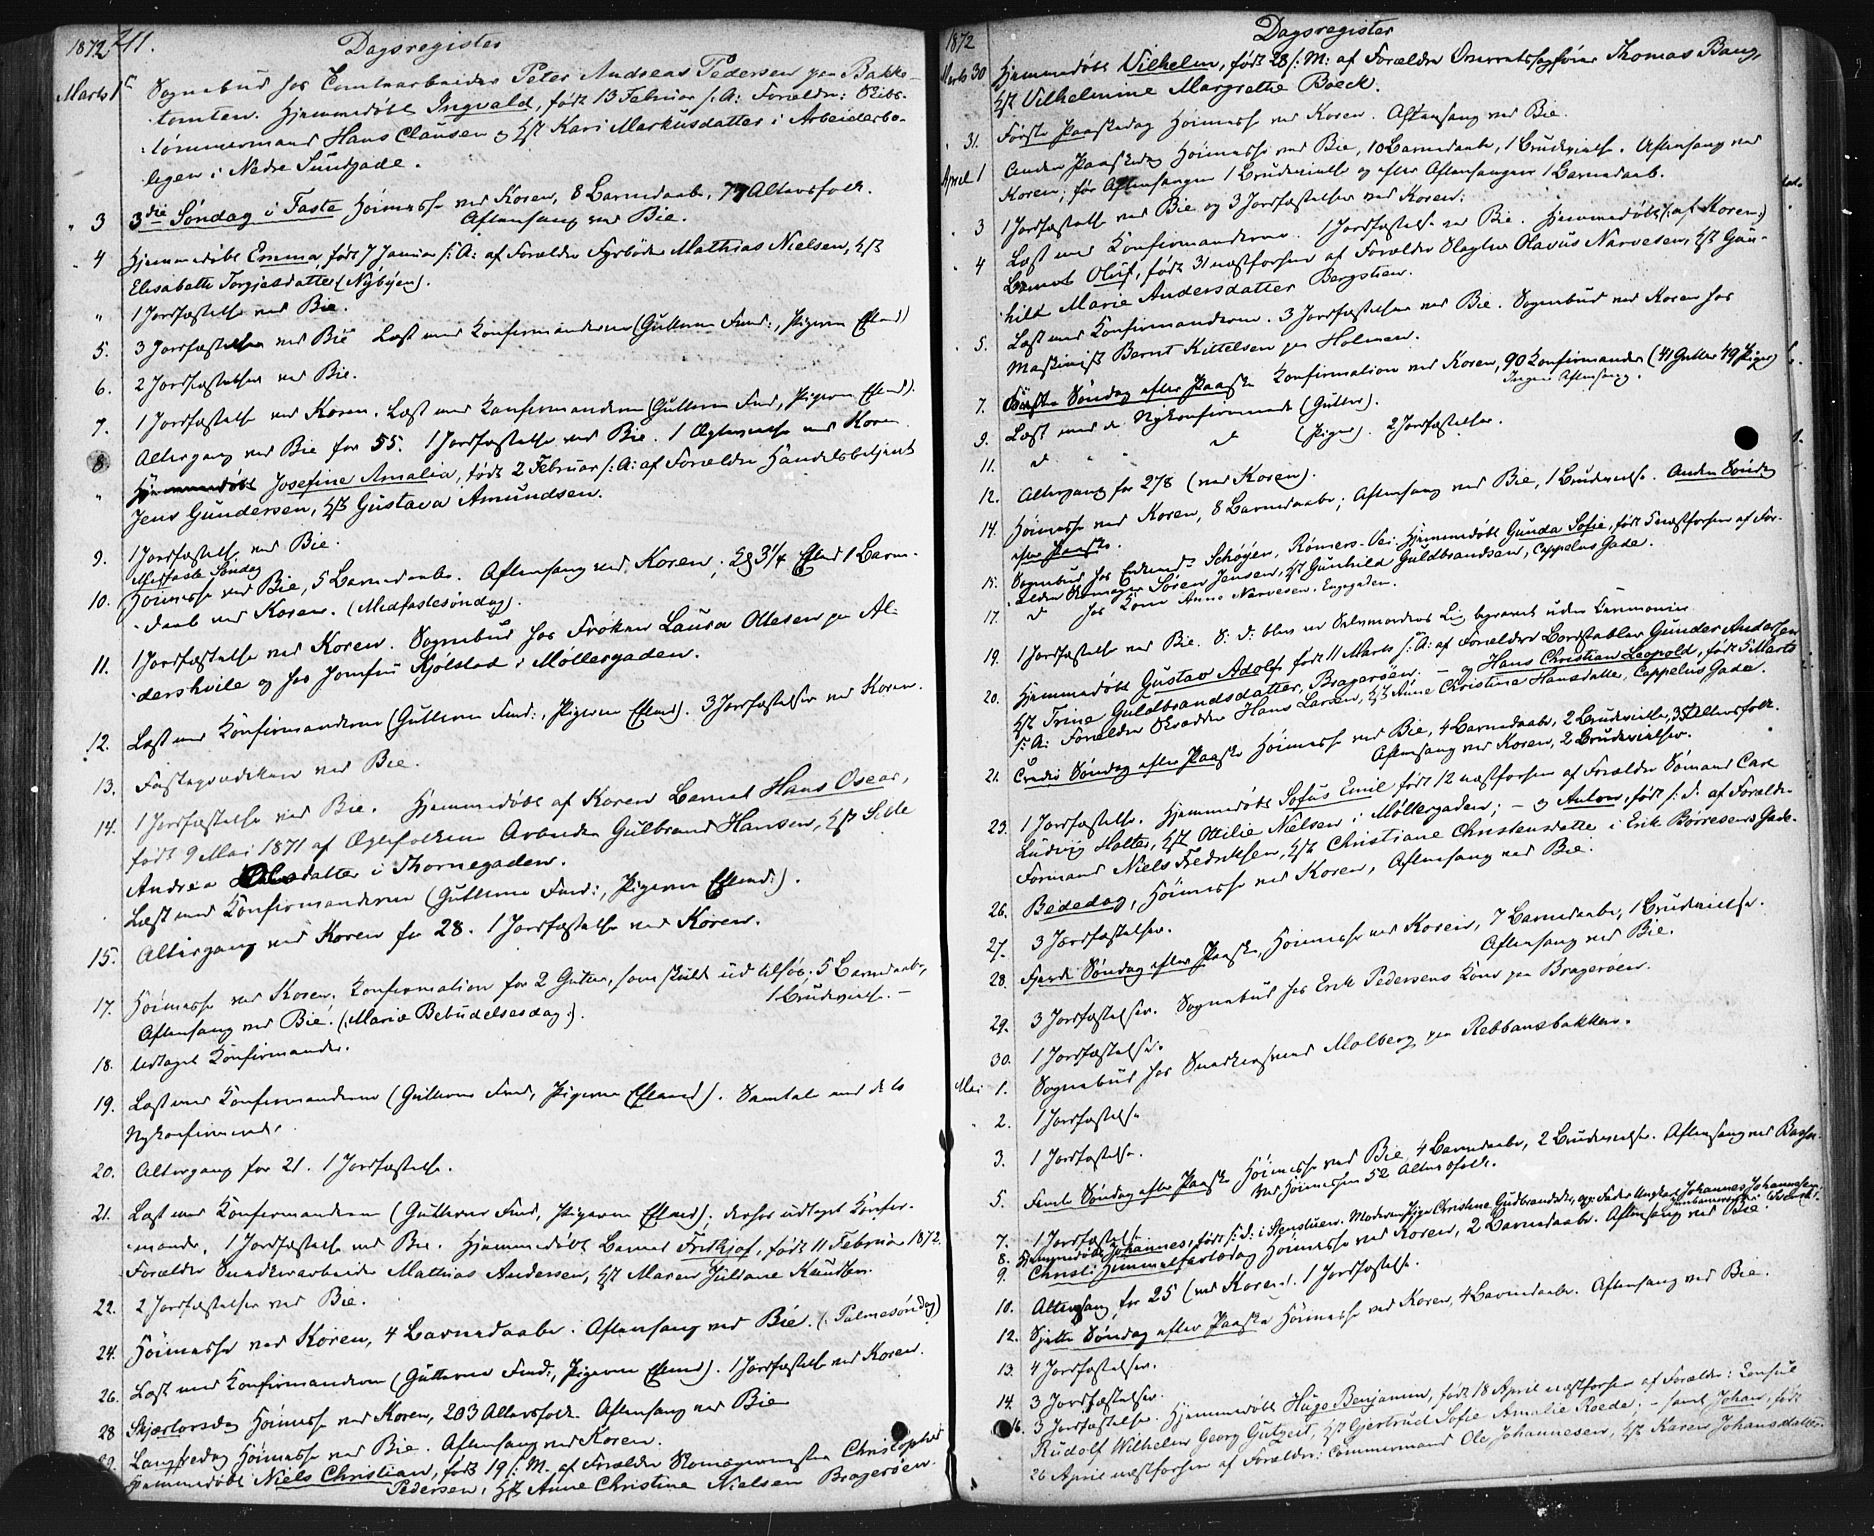 1872
211.
Dagsregister
Marts 1ste Sognebud hos Contoarbeider Peter Andreas Pedersen paa Bakke-
tomten. Hjemmedøbt Ingvald, født 13 Februar s: A: Forældre: Skibs-
tømmermand Hans Clausen og Hst Kari Markusdatter i Arbeiderbo-
ligen i Nedre Sundgade.
" 3 3die Søndag i Faste Høimesse ved Koren, 8 Barnedaab, 77 Altersfolk.
Aftensang ved Bie.
" 4 Hjemmedøbt Emma, født 7 Januar s: A: af Forældre Fyrbøder Mathias Nielsen, Hst
Elisabeth Torgjelsdatter (Nybyen).
" 1 Jordfæstelse ved Bie.
5. 3 Jordfæstelser ved Bie Læst med Konfirmanderne (Gutterne Fmd:, Pigerne Eftmd)
6. 2 Jordfæstelser ved Bie.
7. 1 Jordfæstelse ved Koren. Læst med Konfirmanderne (Gutterne Fmd, Pigerne Eftmd).
8 Altergang ved Bie for 55. 1 Jordfæstelse ved Bie. 1 Ægtevielse ved Koren
" Hjemmedøbt Josefine Amalia, født 2 Februar s: A: af Forældre Handelsbetjent
Jens Gundersen, Hst Gustava Amundsen.
9. 1 Jordfæstelse ved Bie.
Midfaste Søndag
10. Høimesse ved Bie, 5 Barnedaab. Aftensang ved Koren; Kl 3 1/4 Eftmd 1 Barne-
daab ved Koren. (Midfastesøndag).
11. 1 Jordfæstelse ved Koren. Sognebud hos Frøken Laura Ottesen paa Al-
dershvile og hos Jomfru Kjølstad i Møllergaden.
12. Læst med Konfirmanderne (Gutterne Fmd:, Pigerne Eftmd). 3 Jordfæstelser ved Koren.
13. Fasteprædiken ved Bie.
14. 1 Jordfæstelse ved Bie. Hjemmedøbt af Koren Barnet Hans Oscar,
født 9 Mai 1871 af Ægtefolkene Arbeider Gulbrand Hansen, Hst Sible
Andrea Olsdatter i Thornegaden.
Læst med Konfirmanderne (Gutterne Fmd:, Pigerne Eftmd:).
15. Altergang ved Koren for 28. 1 Jordfæstelse ved Koren.
17. Høimesse ved Koren. Konfirmation for 2 Gutter, som skulde ud tilsøs. 5 Barnedaab,
1 Brudevielse. –
Aftensang ved Bie. (: Mariæ Bebudelsesdag :).
18. Udtaget Konfirmander.
19. Læst med Konfirmanderne (Gutterne Fmd, Pigerne Eftmd). Samtale med de to
Nykonfirmerede.
20. Altergang for 21. 1 Jordfæstelse.
21. Læst med Konfirmanderne (Gutterne Fmd, Pigerne Eftmd); derhos udtaget Konfir-
mander. 1 Jordfæstelse ved Bie. Hjemmedøbt Barnet Fridtjof, født 11 Februar 1872.
Forældre Snedkerarbeider Mathias Andersen, Hst Maren Juliane Knudsen.
22. 2 Jordfæstelser ved Bie.
24. Høimesse ved Koren, 4 Barnedaab. Aftensang ved Bie. (: Palmesøndag)
26. Læst med Konfirmanderne (Gutterne Fmd:, Pigerne Eftmd). 1 Jordfæstelse ved Koren.
28 Skjærtorsdag Høimesse ved Koren, 203 Altersfolk. Aftensang ved Bie
29. Langfredag Høimesse ved Bie. Aftensang ved Koren.
Hjemmedøbt Niels Christian, født 19 s: M. af Forældre Skomagermester Christopher
Pedersen, Hst Anne Christine Nielsen Bragerøen.
1872
Dagsregister
Marts 30 Hjemmedøbt Vilhelm, født 28 s: M: af Forældre Overretssagfører Thomas Bang,
Hst Vilhelmine Margrethe Boeck.
" 31. Første Paaskedag Høimesse ved Koren. Aftensang ved Bie.
April 1 Anden Paaskedag Høimesse ved Bie, 10 Barnedaab, 1 Brudevielse. Aftensang ved
Koren; før Aftensangen 1 Brudevielse og efter Aftensangen 1 Barnedaab.
" 3 1 Jordfæstelse ved Bie og 3 Jordfæstelser ved Koren.
" 4 Læst med Konfirmanderne. 1 Jordfæstelse ved Bie. Hjemmedøbt (: af Koren:)
Barnet Oluf, født 31 næstforhen af Forældre Slagter Olavus Narvesen, Hst Gun-
hild Marie Andersdatter Bergstien.
" 5. Læst med Konfirmanderne. 3 Jordfæstelser ved Bie. Sognebud ved Koren hos
Maskinist Bernt Kittelsen paa Holmen.
7. Første Søndag efter Paaske Konfirmation ved Koren, 90 Konfirmander (41 Gutter 49 Piger)
Ingen Aftensang.
9. Læst med de Nykonfirmerede (Gutter).
11. d " " d (Piger). 2 Jordfæstelser.
12. Altergang for 278 (ved Koren).
14. Høimesse ved Koren, 8 Barnedaab; Aftensang ved Bie, 1 Brudevielse. Anden Søndag
efter Paaske.
15. Sognebud hos Schøyen, Rømers-Vei. Hjemmedøbt Gunda Sofie, født 5 næstforhen af For-
ældre Skomager Søren Jensen, Hst Gunhild Guldbrandsen, Cappelus Gade.
17. d hos Kone Anne Narvesen, Engegaden.
19. 1 Jordfæstelse ved Bie. S: D: blev en Selvmorders Lig begravet uden Ceremonier
20. Hjemmedøbt Gustav Adolf født 11 Marts s: A: af Forældre Bordstabler Gunder Andersen
Hst Trine Guldbrandsdatter, Bragerøen. – og Hans Christian Leopold, født 5 Marts
s: A: Forældre Skrædder Hans Larsen, Hst Anne Christine Hansdatter, Cappelus Gade.
21. Tredie Søndag efter Paaske Høimesse ved Bie, 4 Barnedaab, 2 Brudevielser, 35 Altersfolk.
Aftensang ved Koren, 2 Brudevielser.
23. 1 Jordfæstelse. Hjemmedøbt Sofus Emil født 12 næstforhen af Forældre Sømand Carl
Ludvig Holter, Hst Ottilie Nielsen i Møllergaden; – og Anton, født s: D. af Forældre
Formand Niels Fredriksen, Hst Christiane Christensdatter i Erik Børresens Gade.
26. Bededag, Høimesse ved Koren, Aftensang ved Bie.
27. 3 Jordfæstelser.
28. Fjerde Søndag efter Paaske, Høimesse ved Koren, 7 Barnedaab, 1 Brudevielse.
Aftensang ved Bie.
29. 3 Jordfæstelser. Sognebud hos Erik Pedersens Kone paa Bragerøen.
30. 1 Jordfæstelse.
Mai 1. Sognebud hos Snedkersvend Malberg paa Rebbansbakken.
2. 1 Jordfæstelse
3. 1 Jordfæstelse.
5. Femte Søndag efter Paaske Høimesse ved Bie 4 Barnedaab, 2 Brudevielser. Aftensang ved
Ved Høimessen 52 Altersfolk.
7. 1 Jordfæstelse
8. Hjemmedøbt Johannes, født s: D: i Stenstuen. Moderen Pige Christine Gudbrandsdtr, opg: Fader Ungkarl Johannes Johannesen
9. Christi Himmelfartsdag Høimesse ved Koren, 2 Barnedaab. Aftensang ved Bie.
10. Altergang for 25 (ved Koren). 1 Jordfæstelse.
12. Sjette Søndag efter Paaske Høimesse ved Koren, 4 Barnedaab. Aftensang ved Bie.
13. 4 Jordfæstelser.
14. 3 Jordfæstelser.
16. 3 Jordfæstelse. Hjemmedøbt Hugo Benjamin, født 18 April næstforhen af Forældre: Konsul
Rudolf Wilhelm Georg Gutzeit, Hst Gjertrud Sofie Amalie Roede. – samt Johan, født
26 April næstforhen af Forældre: Tømmermand Ole Johannesen, Hst Karen Johansdatter